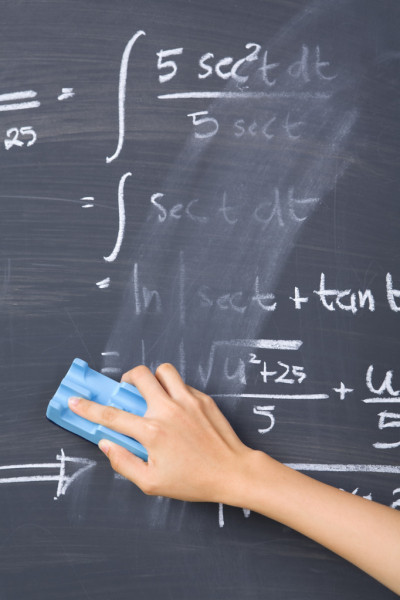 = ∫ 5 sec²t dt / 5 sect
25
= ∫ sect dt
= ln | sect + tan t
= ln | √u²+25 / 5 + u / 5